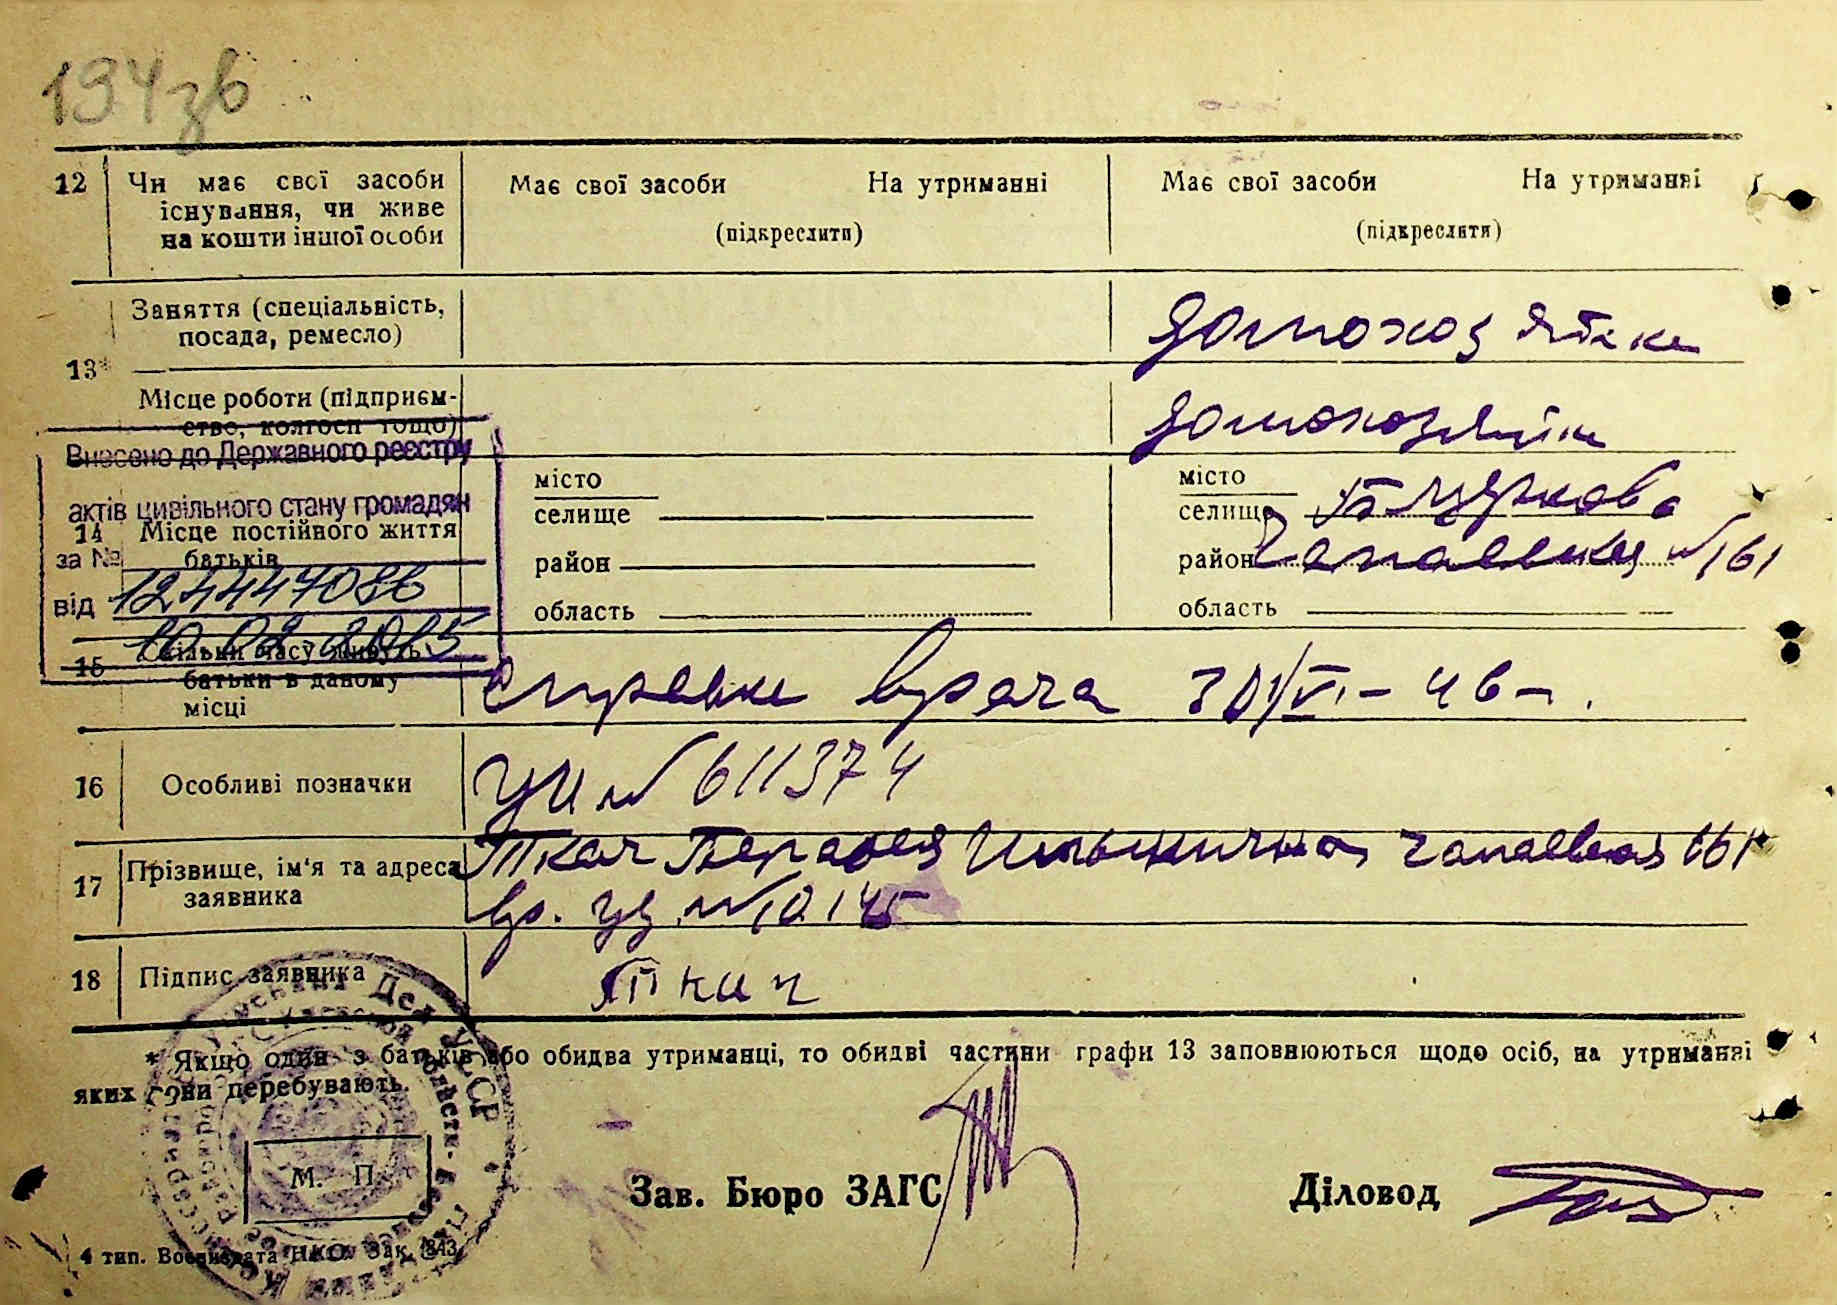 194зв
12 Чи має свої засоби існування, чи живе на кошти іншої особи
Має свої засоби На утриманні
(підкреслити)
Має свої засоби На утриманні
(підкреслити)
13*
Заняття (спеціальність, посада, ремесло)
Місце роботи (підприєм-
ство, колгосп тощо)
Внесено до Державного реєстру
актів цивільного стану громадян
за №
від 12444470
10.02.2015
14 Місце постійного життя батьків
місто
селище
район
область
місто
селище Б Церковь
район Чапаевская №161
область
15 Скільки часу живуть
батьки в даному
місці
справка врача 30/VI-46-.
16 Особливі позначки
УИ №611374
17 Прізвище, ім'я та адреса
заявника
Ткач Ильинична Чапаевская 161
№10145
18 Підпис заявника
Ткач
* Якщо один з батьків або обидва утриманці, то обидві частини графи 13 заповнюються щодо осіб, на утриманні
яких вони перебувають.
М. П.
Зав. Бюро ЗАГС
Діловод
4 тип. Воениздата НКО. Зак. 1343